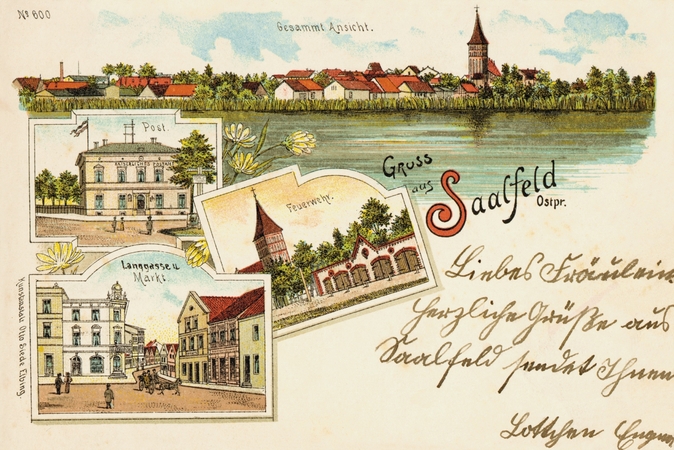 No 600
Gesammt Ansicht.
Post.
KAISERLICHES POSTAMT
Gruss
aus
Saalfeld
Ostpr.
Feuerwehr.
Langgasse u
Markt.
Kunstanstalt Otto Siede Elbing.
Liebes Fräulein
herzliche Grüße aus
Saalfeld sendet Ihnen
Lottchen